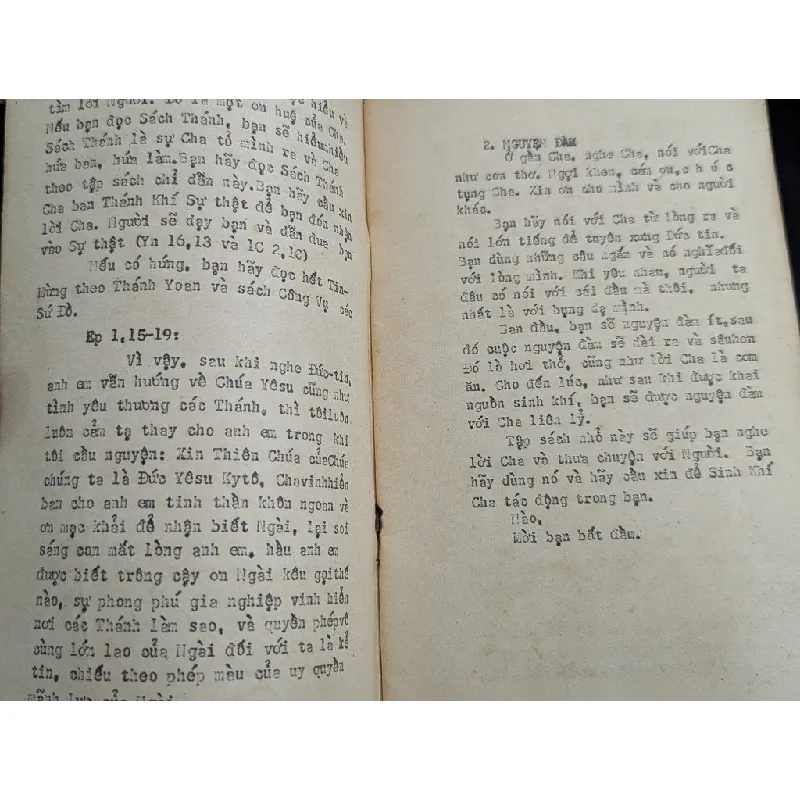 tìm lời Người. Đó là một ơn huệ của Cha.
Nếu bạn đọc Sách Thánh, bạn sẽ hiểu nhiều,
Sách Thánh là sự Cha tỏ mình ra và Cha
hứa ban, hứa làm.Bạn hãy đọc Sách Thánh
theo tập sách chỉ dẫn này.Bạn hãy cầu xin
Cha ban Thánh Khí Sự thật để bạn đón nhận
lời Cha. Người sẽ dạy bạn và dẫn đưa bạn
vào Sự thật (Yn 16,13 và 1C 2,10)
Nếu có hứng, bạn hãy đọc hết Tin-
Mừng theo Thánh Yoan và sách Công Vụ các
Sứ Đồ.
Ep 1,15-19:
Vì vậy, sau khi nghe Đức-tin,
anh em vẫn hướng về Chúa Yêsu cũng như
tình yêu thương các Thánh, thì tôiluôn
luôn cảm tạ thay cho anh em trong khi
tôi cầu nguyện: Xin Thiên Chúa củaChúa
chúng ta là Đức Yêsu Kytô, Chavinhhiển
ban cho anh em tinh thần khôn ngoan và
ơn mạc khải để nhận biết Ngài, lại soi
sáng con mắt lòng anh em, hầu anh em
được biết trông cậy ơn Ngài kêu gọithế
nào, sự phong phú gia nghiệp vinh hiển
nơi các Thánh làm sao, và quyền phépvô
cùng lớn lao của Ngài đối với ta là kẻ
tin, chiếu theo phép mầu của uy quyền
mãnh lực của Ngài
2. NGUYỆN ĐÀM
Ở gần Cha, nghe Cha, nói vớiCha
như con thơ. Ngợi khen, cám ơn,c h ú c
tụng Cha. Xin ơn cho mình và cho người
khác.
Bạn hãy nói với Cha từ lòng ra và
nói lớn tiếng để tuyên xưng Đức tin.
Bạn dùng những câu ngắn và có nghĩađối
với lòng mình. Khi yêu nhau, người ta
đâu có nói với cái đầu mà thôi, nhưng
nhất là với bụng dạ mình.
Ban đầu, bạn sẽ nguyện đàm ít,sau
đó cuộc nguyện đàm sẽ dài ra và sâuhơn
Đó là hơi thở, cũng như lời Cha là cơm
ăn. Cho đến lúc, như sau khi được khai
nguồn sinh khí, bạn sẽ được nguyện đàm
với Cha liên lỉ.
Tập sách nhỏ này sẽ giúp bạn nghe
lời Cha và thưa chuyện với Người. Bạn
hãy dùng nó và hãy cầu xin để Sinh Khí
Cha tác động trong bạn.
Nào,
Mời bạn bắt đầu.